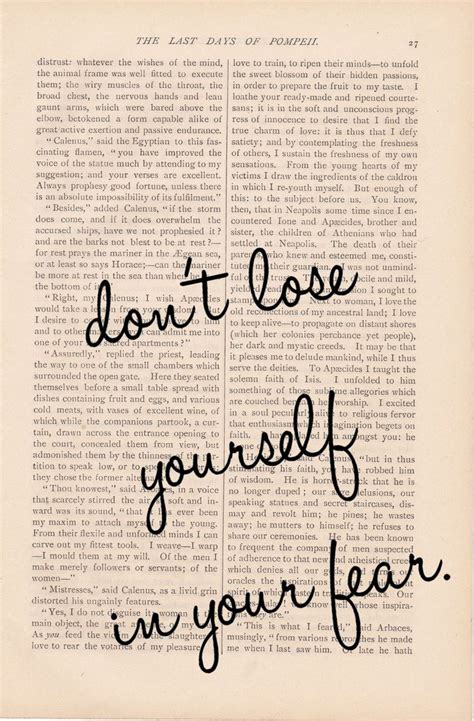 THE LAST DAYS OF POMPEII. 27
distrust: whatever the wishes of the mind,
the animal frame was well fitted to execute
them; the wiry muscles of the throat, the
broad chest, the nervous hands and lean
gaunt arms, which were bared above the
elbow, betokened a form capable alike of
great active exertion and passive endurance.
"Calenus," said the Egyptian to this fas-
cinating flamen, "you have improved the
voice of the statue much by attending to my
suggestion; and your verses are excellent.
Always prophesy good fortune, unless there
is an absolute impossibility of its fulfilment."
"Besides," added Calenus, "if the storm
does come, and if it does overwhelm the
accursed ships, have we not prophesied it?
and are the barks not blest to be at rest?—
for rest prays the mariner in the Ægean sea,
or at least so says Horace;—can the
be more at rest in the sea than when he
the bottom of it
"Right, my Calenus; I wish Apæcides
would take a
But I desire to
and to other
one of your apartments?"
"Assuredly," replied the priest, leading
the way to one of the small chambers which
surrounded the open gate. Here they seated
themselves before a small table spread with
dishes containing fruit and eggs, and various
cold meats, with vases of excellent wine, of
which while the companions partook, a cur-
tain, drawn across the entrance opening to
the court, concealed them from view, but
admonished them by the thinness
tition to speak low, or to
they chose the former
"Thou knowest," said in a voice
that scarcely stirred the
ward was its sound, "that
my maxim to attach myself to the young.
From their flexile and unformed minds I can
carve out my fittest tools. I weave—I warp
—I mould them at my will. Of the men I
make merely followers or servants; of the
women—"
"Mistresses," said Calenus, as a livid grin
distorted his ungainly features.
"Yes, I do not disguise it: woman is
main object, the great
As you feed the victim for the slaughter,
love to rear the votaries of my pleasure.
love to train, to ripen their minds—to unfold
the sweet blossom of their hidden passions,
in order to prepare the fruit to my taste. I
loathe your ready-made and ripened courte-
sans; it is in the soft and unconscious prog-
ress of innocence to desire that I find the
true charm of love: it is thus that I defy
satiety; and by contemplating the freshness
of others, I sustain the freshness of my own
sensations. From the young hearts of my
victims I draw the ingredients of the caldron
in which I re-youth myself. But enough of
this: to the subject before us. You know,
then, that in Neapolis some time since I en-
countered Ione and Apæcides, brother and
sister, the children of Athenians who had
settled at Neapolis. The death of their
parents, who knew and esteemed me, consti-
tuted me their guardian.
Next to woman, I love the
old recollections of my ancestral land; I love
to keep alive—to propagate on distant shores
(which her colonies perchance yet people),
her dark and mystic creeds. It may be that
it pleases me to delude mankind, while I thus
serve the deities. To Apæcides I taught the
solemn faith of Isis. I unfolded to him
something of those sublime allegories which
are couched beneath her worship. I excited
in a soul peculiarly alive to religious fervor
that enthusiasm which imagination begets on
faith. I have placed him amongst you: he
is one of you."
his faith, you have robbed him
of wisdom. He is horror-struck that he is
no longer duped; our sage delusions, our
speaking statues and secret staircases, dis-
may and revolt him; he pines; he wastes
away; he mutters to himself; he refuses to
share our ceremonies. He has been known
to frequent the company of men suspected
of adherence to that new and atheistical creed
which denies all our gods,
"This is what I feared," said Arbaces,
musingly, "from various reproaches he made
me when I last saw him. Of late he hath
don't lose
yourself
in your fear.